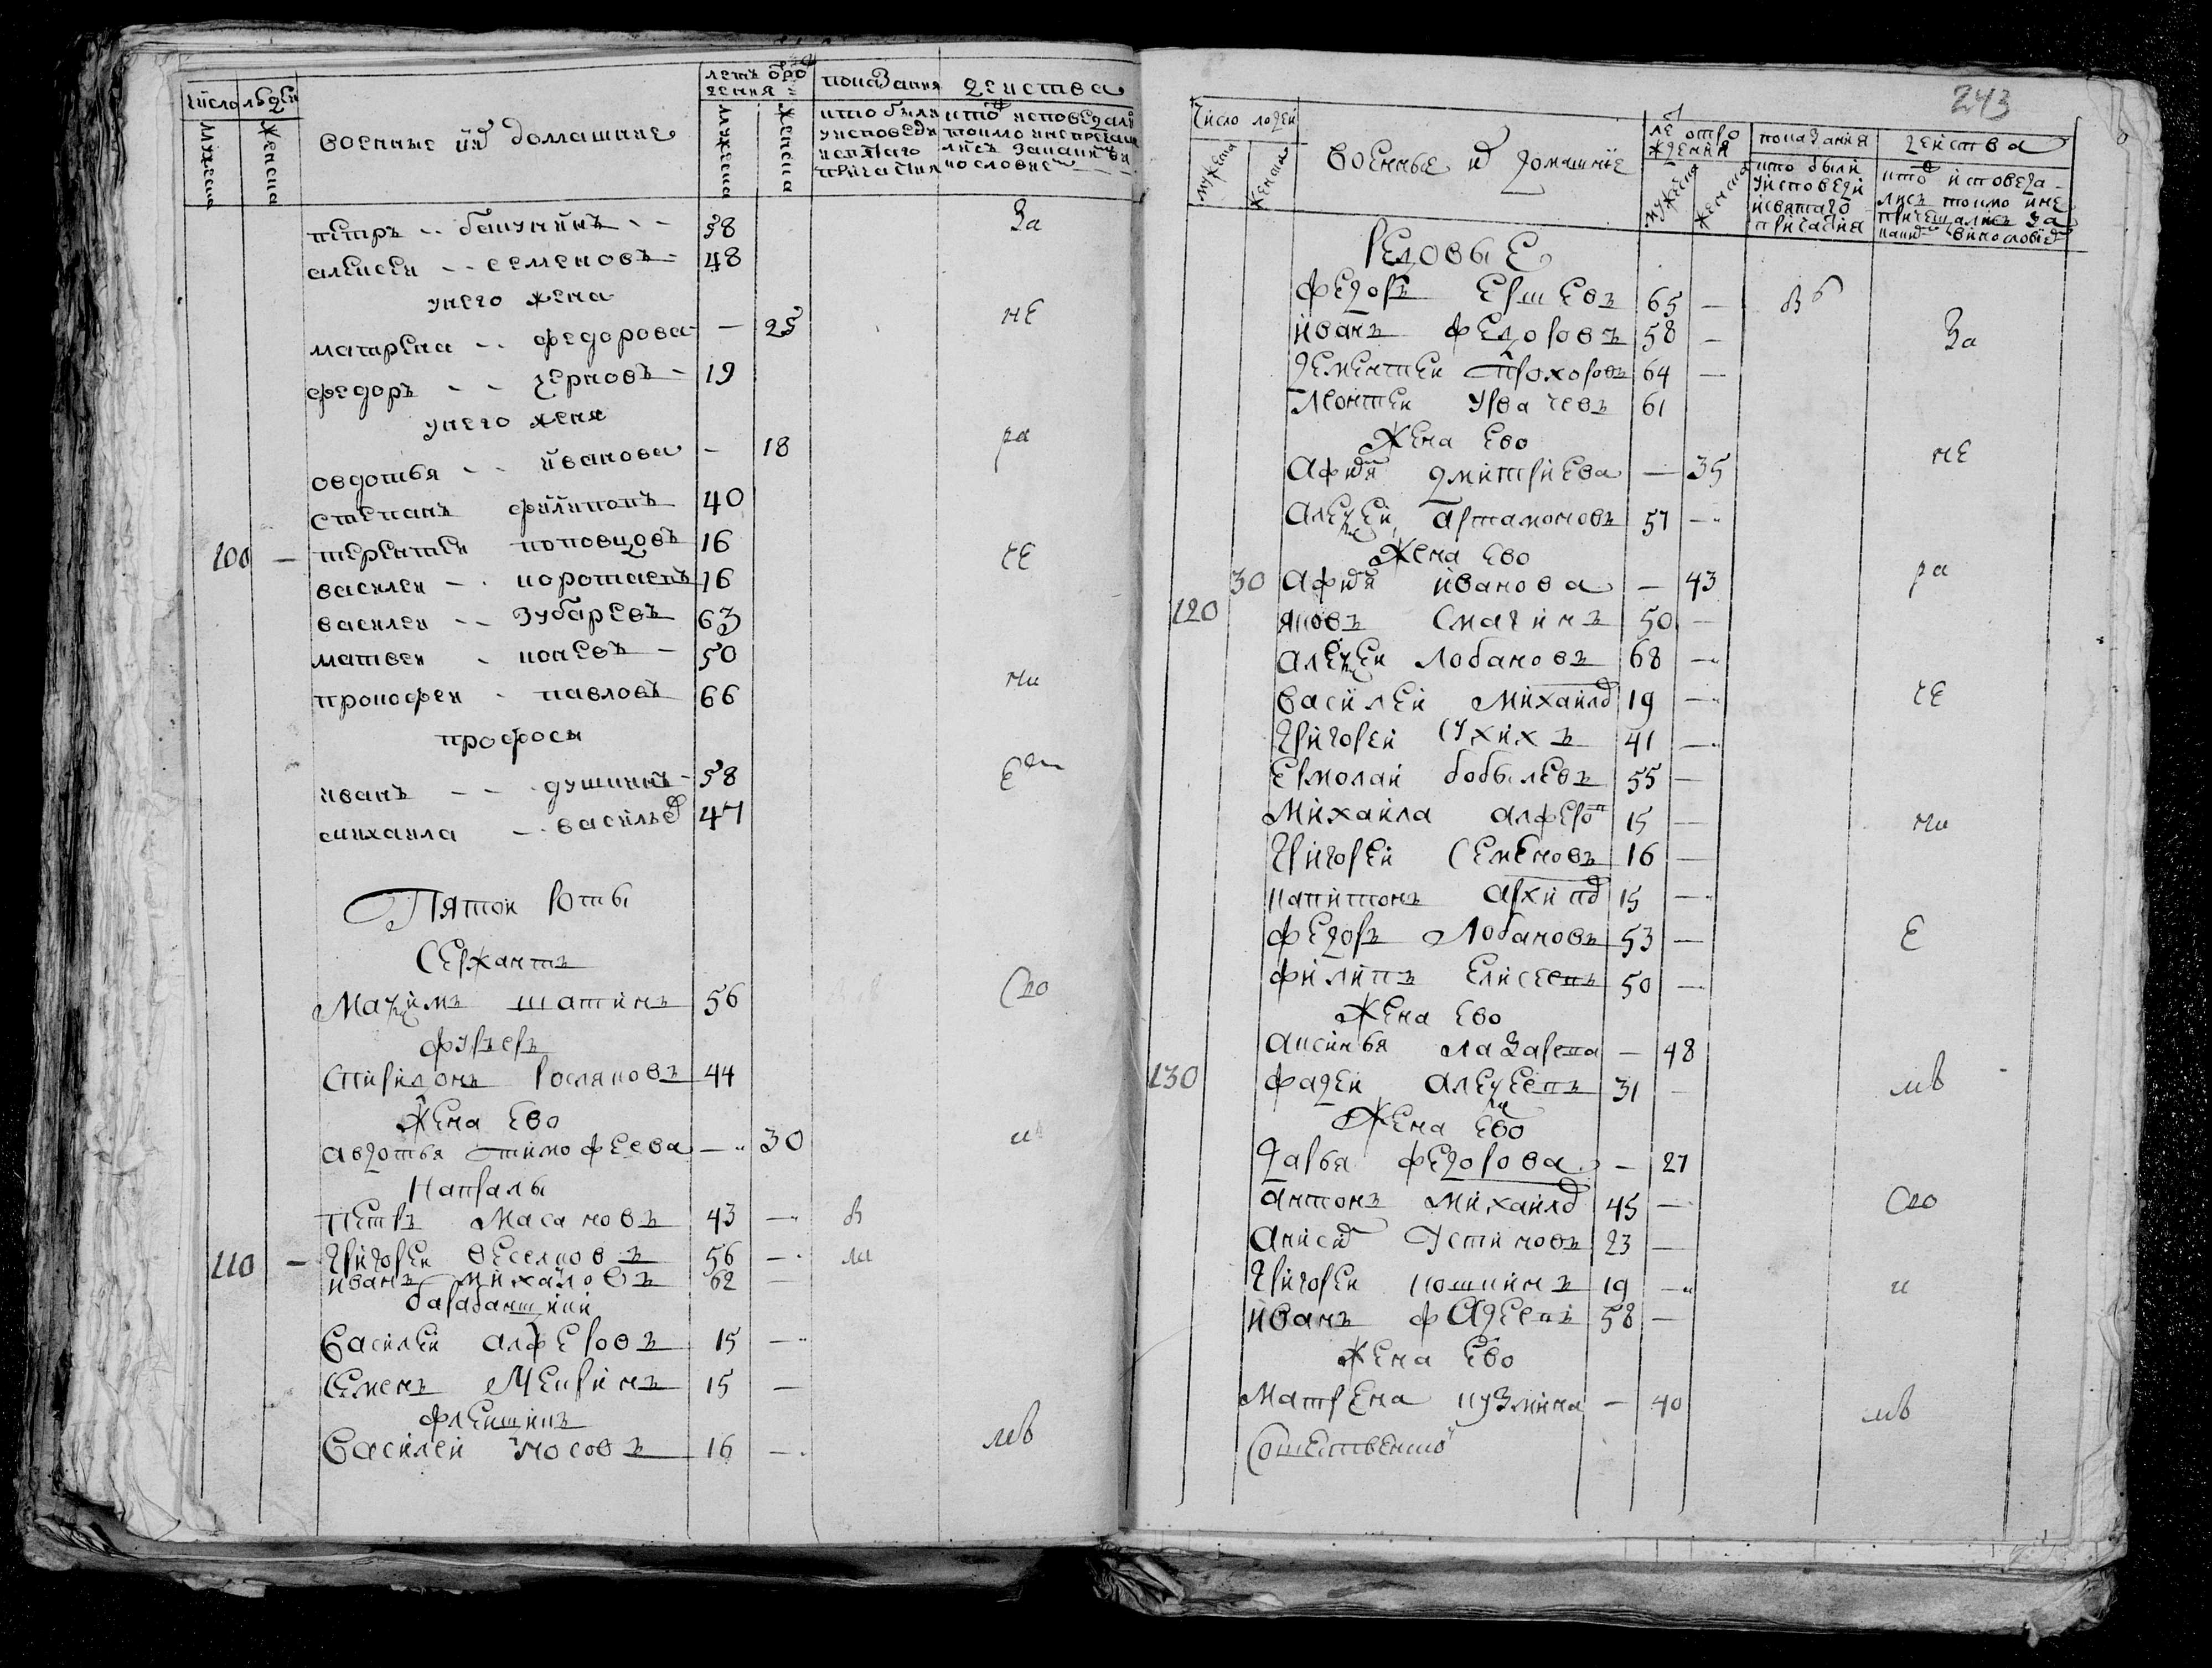 число людей
мужеска
женска
военные их домашние
летъ отро
дения
мужеска
женска
показания
действа
кто были
у исповеди
и святаго
причастия
кто исповедали
токмо и не прича
лись за каким ви
нословием
петръ бакунинъ 58 За
алексеи семеновъ 48
у него жена
матрена федорова — 25 не
федоръ черновъ 19
у него жена
овдотья иванова — 18 ра
степанъ филипопъ 40
200 терентеи поповцовъ 16 че
василеи коротаепъ 16
василеи зубаревъ 63
матвеи копевъ 50
прокофеи павловъ 66 ни
профосы
иванъ душкинъ 58 Е
михаила васильев 47
Пятои Роты
Сержантъ
Маѯимъ шатинъ 56 Ско
фурьеръ
Спиридонъ Росляковъ 44
Жена Ево
авдотья тимофеева — 30 и
Капралы
Петръ Масановъ 43 — в
210 — Григореи веселковъ 56 —
иванъ михаиловъ 62 —
барабанщики
Василеи алферовъ 15 —
Семенъ Мекринъ 15 —
флеищикъ
Василеи Носовъ 16 — мв
243
Число людеи
мужска
женска
военные и домашние
ле отро
ждения
мужеска
женска
показания
действа
кто были
у исповеди
и святаго
причастия
кто исповеда
лись токмо и не
причещались за
каким винословием
Редовые
федоръ Ершевъ 65 — в
иванъ федоровъ 58 — За
дементеи прохоровъ 64 —
Леонтеи Увачевъ 61
Жена Ево
Афим дмитриева — 35 не
Алеѯеи артамоновъ 57 —
Жена Ево
30 Афим иванова — 43 ра
220 яковъ Смагинъ 50 —
алеѯеи Лобановъ 68 —
василеи михаилов 19 — че
Григореи Сухихъ 41 —
Ермолаи бобылевъ 55 —
Михаила алферо 15 — ни
Григореи Семеновъ 16 —
капитонъ архипов 15 —
федоръ Лобановъ 53 — Е
филипъ Елисеепъ 50 —
Жена Ево
аксинья лазарепа — 48
230 фадеи алеѯеепъ 31 — мв
Жена Ево
дарья федорова — 27
антонъ михаилов 45 — Ско
анисим Устиновъ 23 —
Григореи кошкинъ 19 — и
иванъ фадеепъ 58 —
Жена Ево
Матрена кузмина — 40 мв
Сошественско